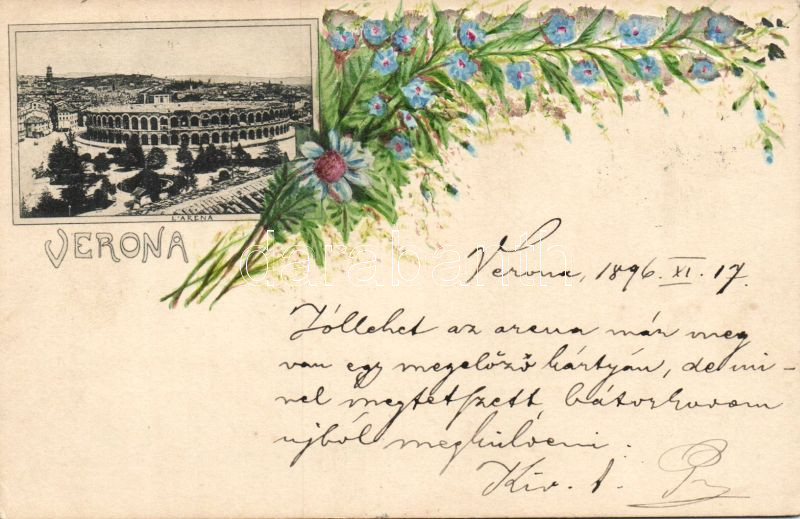 L'ARENA
VERONA
Verona, 1896. XI. 17.
Jóllehet az arena már meg
van egy megelőző kártyán, de mi-
vel megtetszett bátorkodom
ujból megküldeni.
Kiv. t.
darabanth